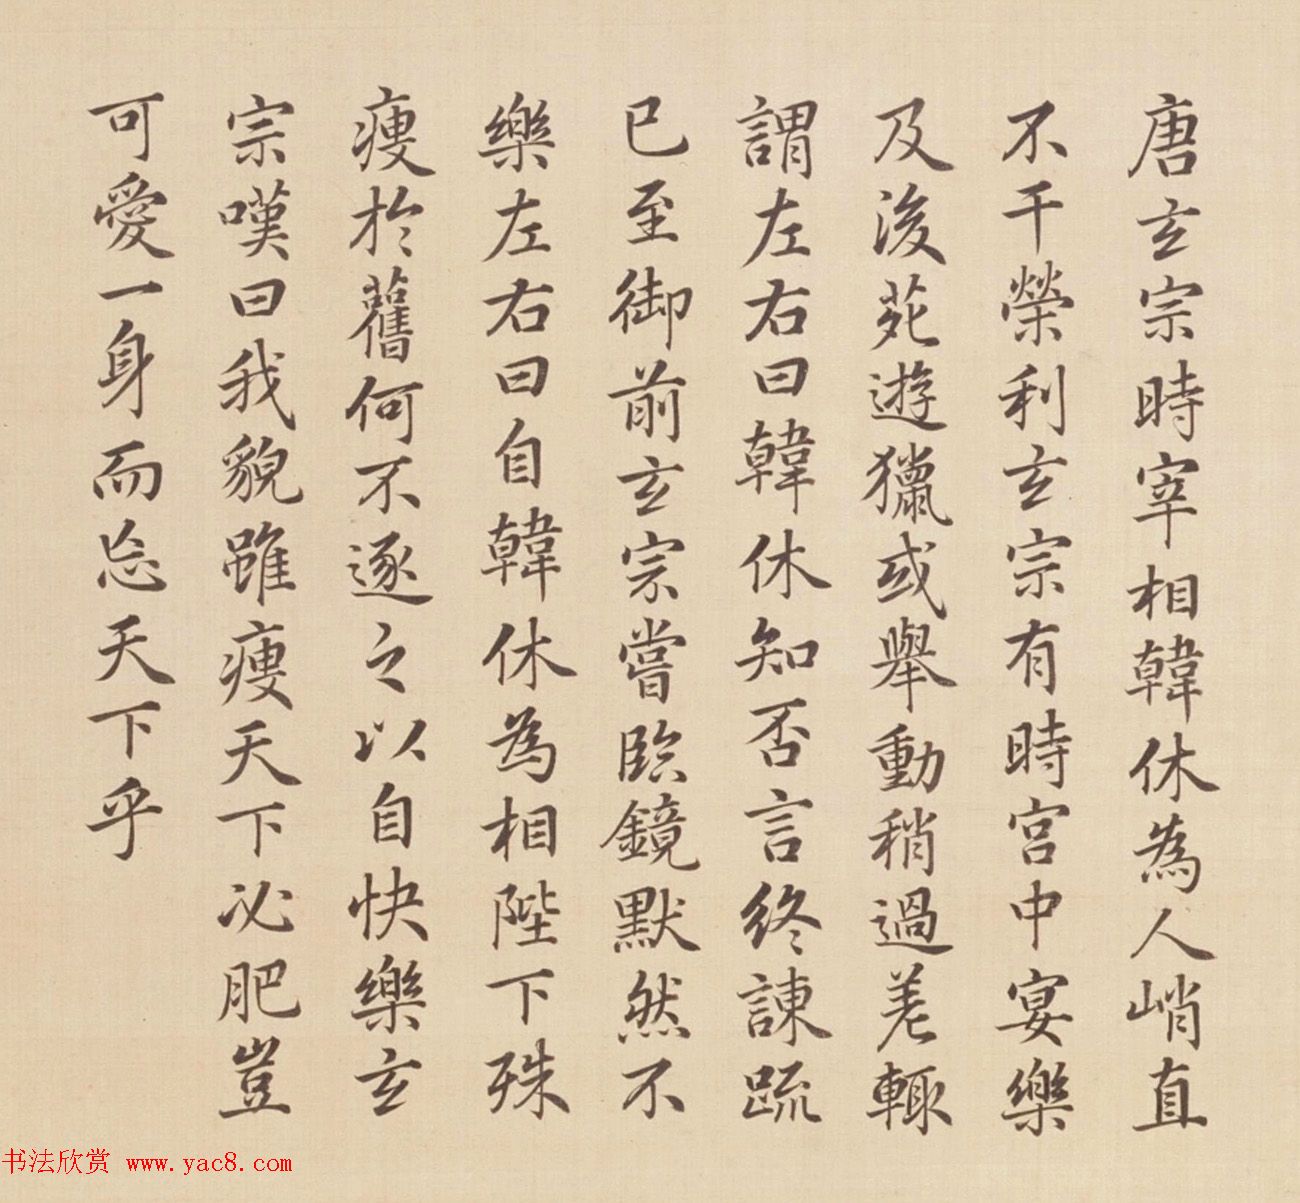 唐玄宗時宰相韓休為人峭直
不干榮利玄宗有時宮中宴樂
及後苑遊獵或舉動稍過差輒
謂左右曰韓休知否言終諫疏
已至御前玄宗嘗臨鏡默然不
樂左右曰自韓休為相陛下殊
瘦於舊何不逐之以自快樂玄
宗嘆曰我貌雖瘦天下必肥豈
可愛一身而忘天下乎
书法欣赏 www.yac8.com